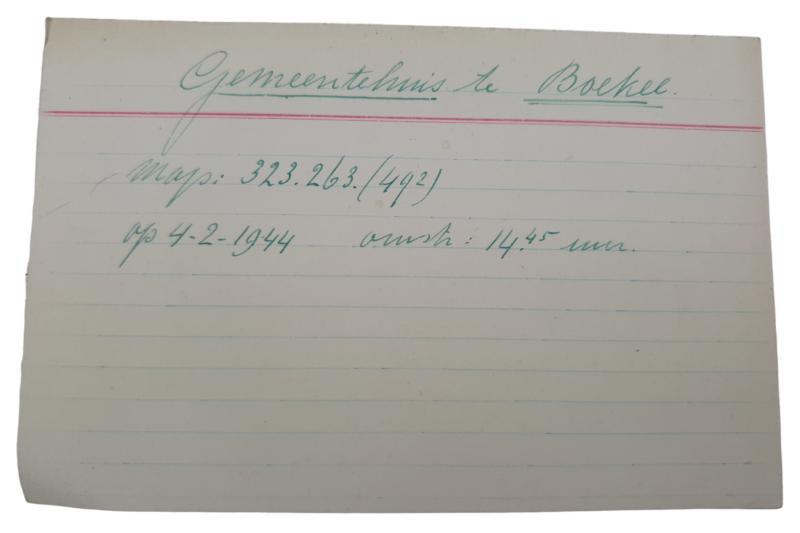 Gemeentehuis te Boekel.
map: 323.263.(49²)
op 4-2-1944 omstr: 14.⁴⁵ uur.